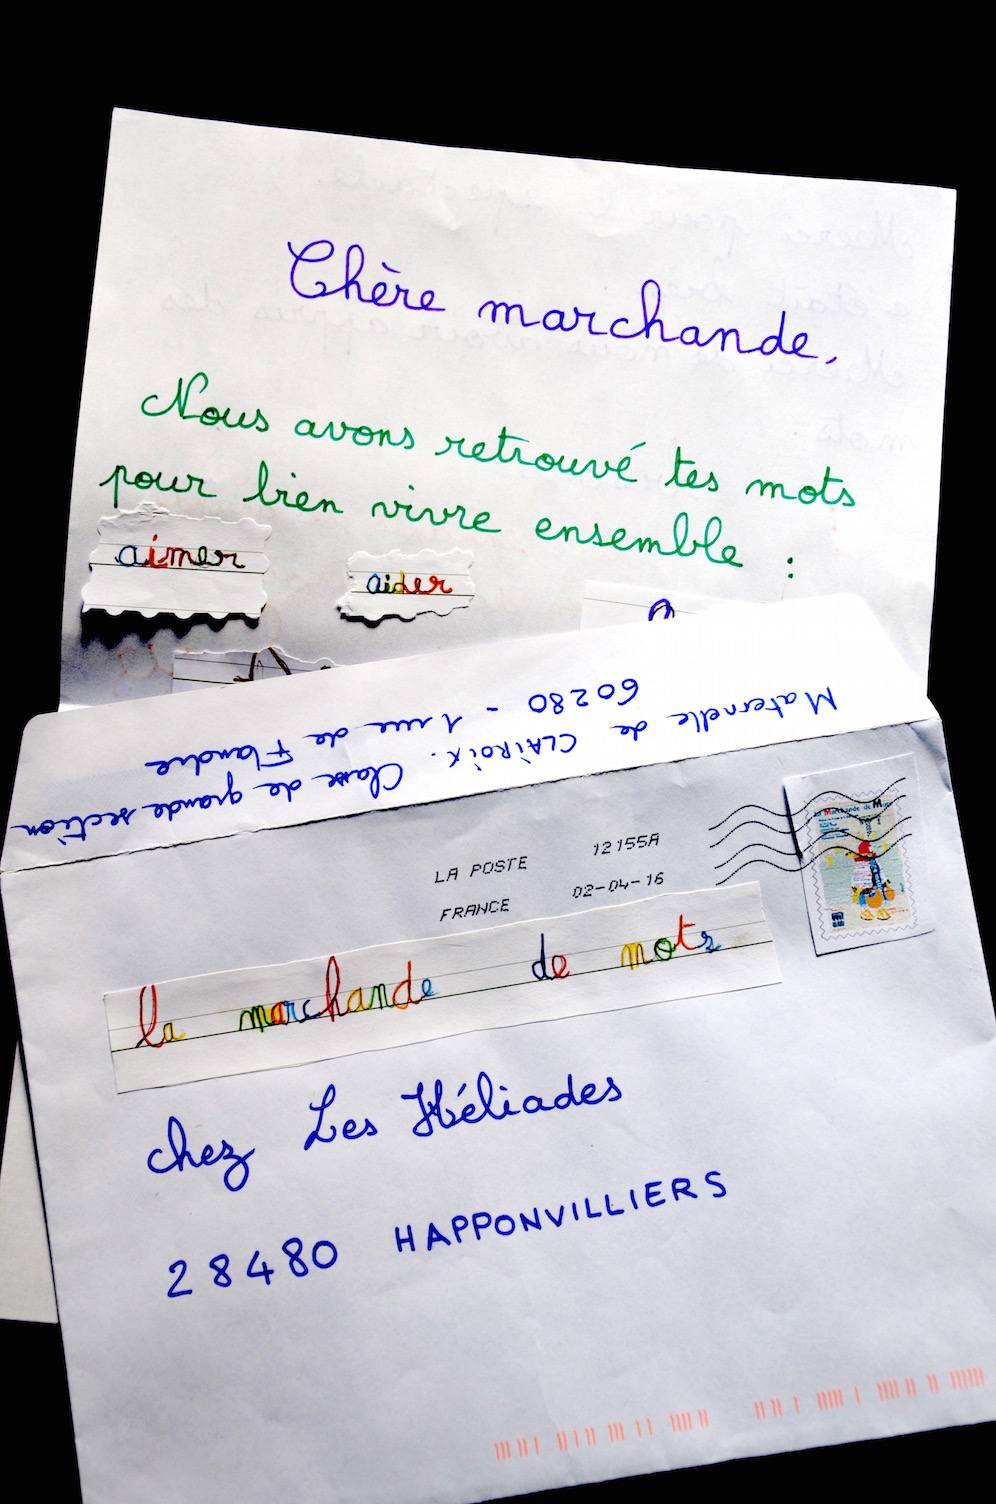 Chère marchande,
Nous avons retrouvé tes mots
pour bien vivre ensemble :
aimer
aider
Maternelle de CLAIROIX. Classe de grande section
60280 - 1 rue de Flandre
LA POSTE 12155A
FRANCE 02-04-16
La Marchande de Mots
la marchande de mots
chez Les Héliades
28480 HAPPONVILLIERS